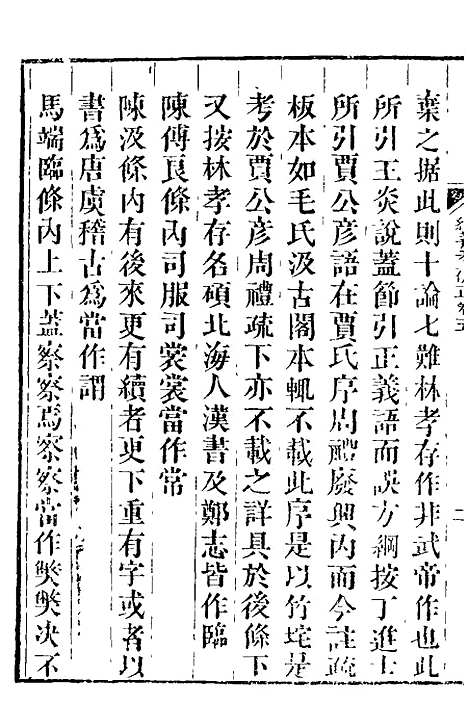 棄之据此則十論七難林孝存作非武帝作也此
所引王炎說蓋節引正義語而誤方綱按丁進士
所引賈公彥語在賈氏序周禮廢興內而今註疏
板本如毛氏汲古閣本輒不載此序是以竹垞是
考於賈公彥周禮疏下亦不載之詳具於後條下
又按林孝存名碩北海人漢書及鄭志皆作臨
陳傅良條內司服司裳裳當作常
陳汲條內有後來更有續者更下重有字或者以
書爲唐虞稽古爲當作謂
馬端臨條內上下蓋察察焉察察當作獘獘决不